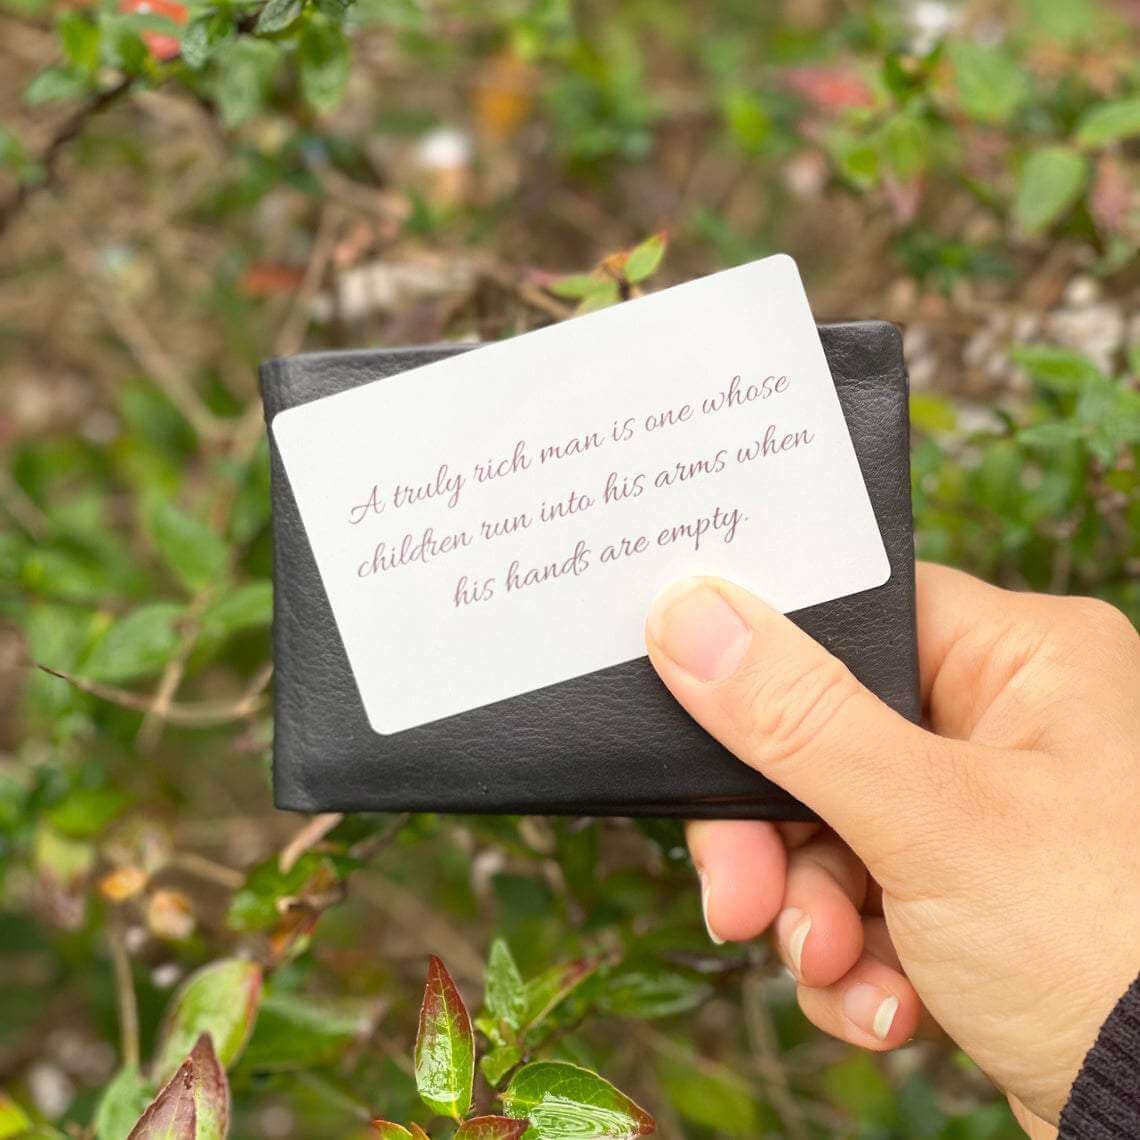 A truly rich man is one whose
children run into his arms when
his hands are empty.